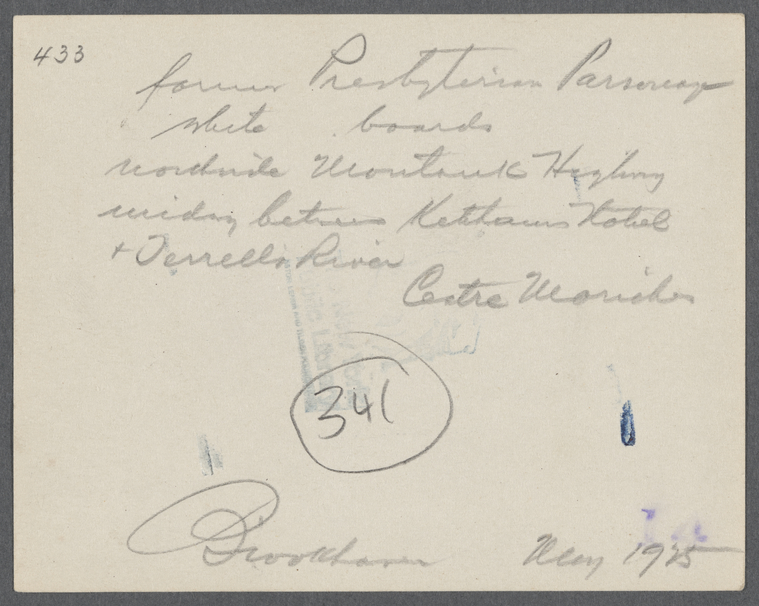 433
former Presbyterian Parsonage
white boards
northside Montauk Highway
midway between Ketchams Hotel
+ Terrells River
Centre Moriches
341
Brookhaven May 1925